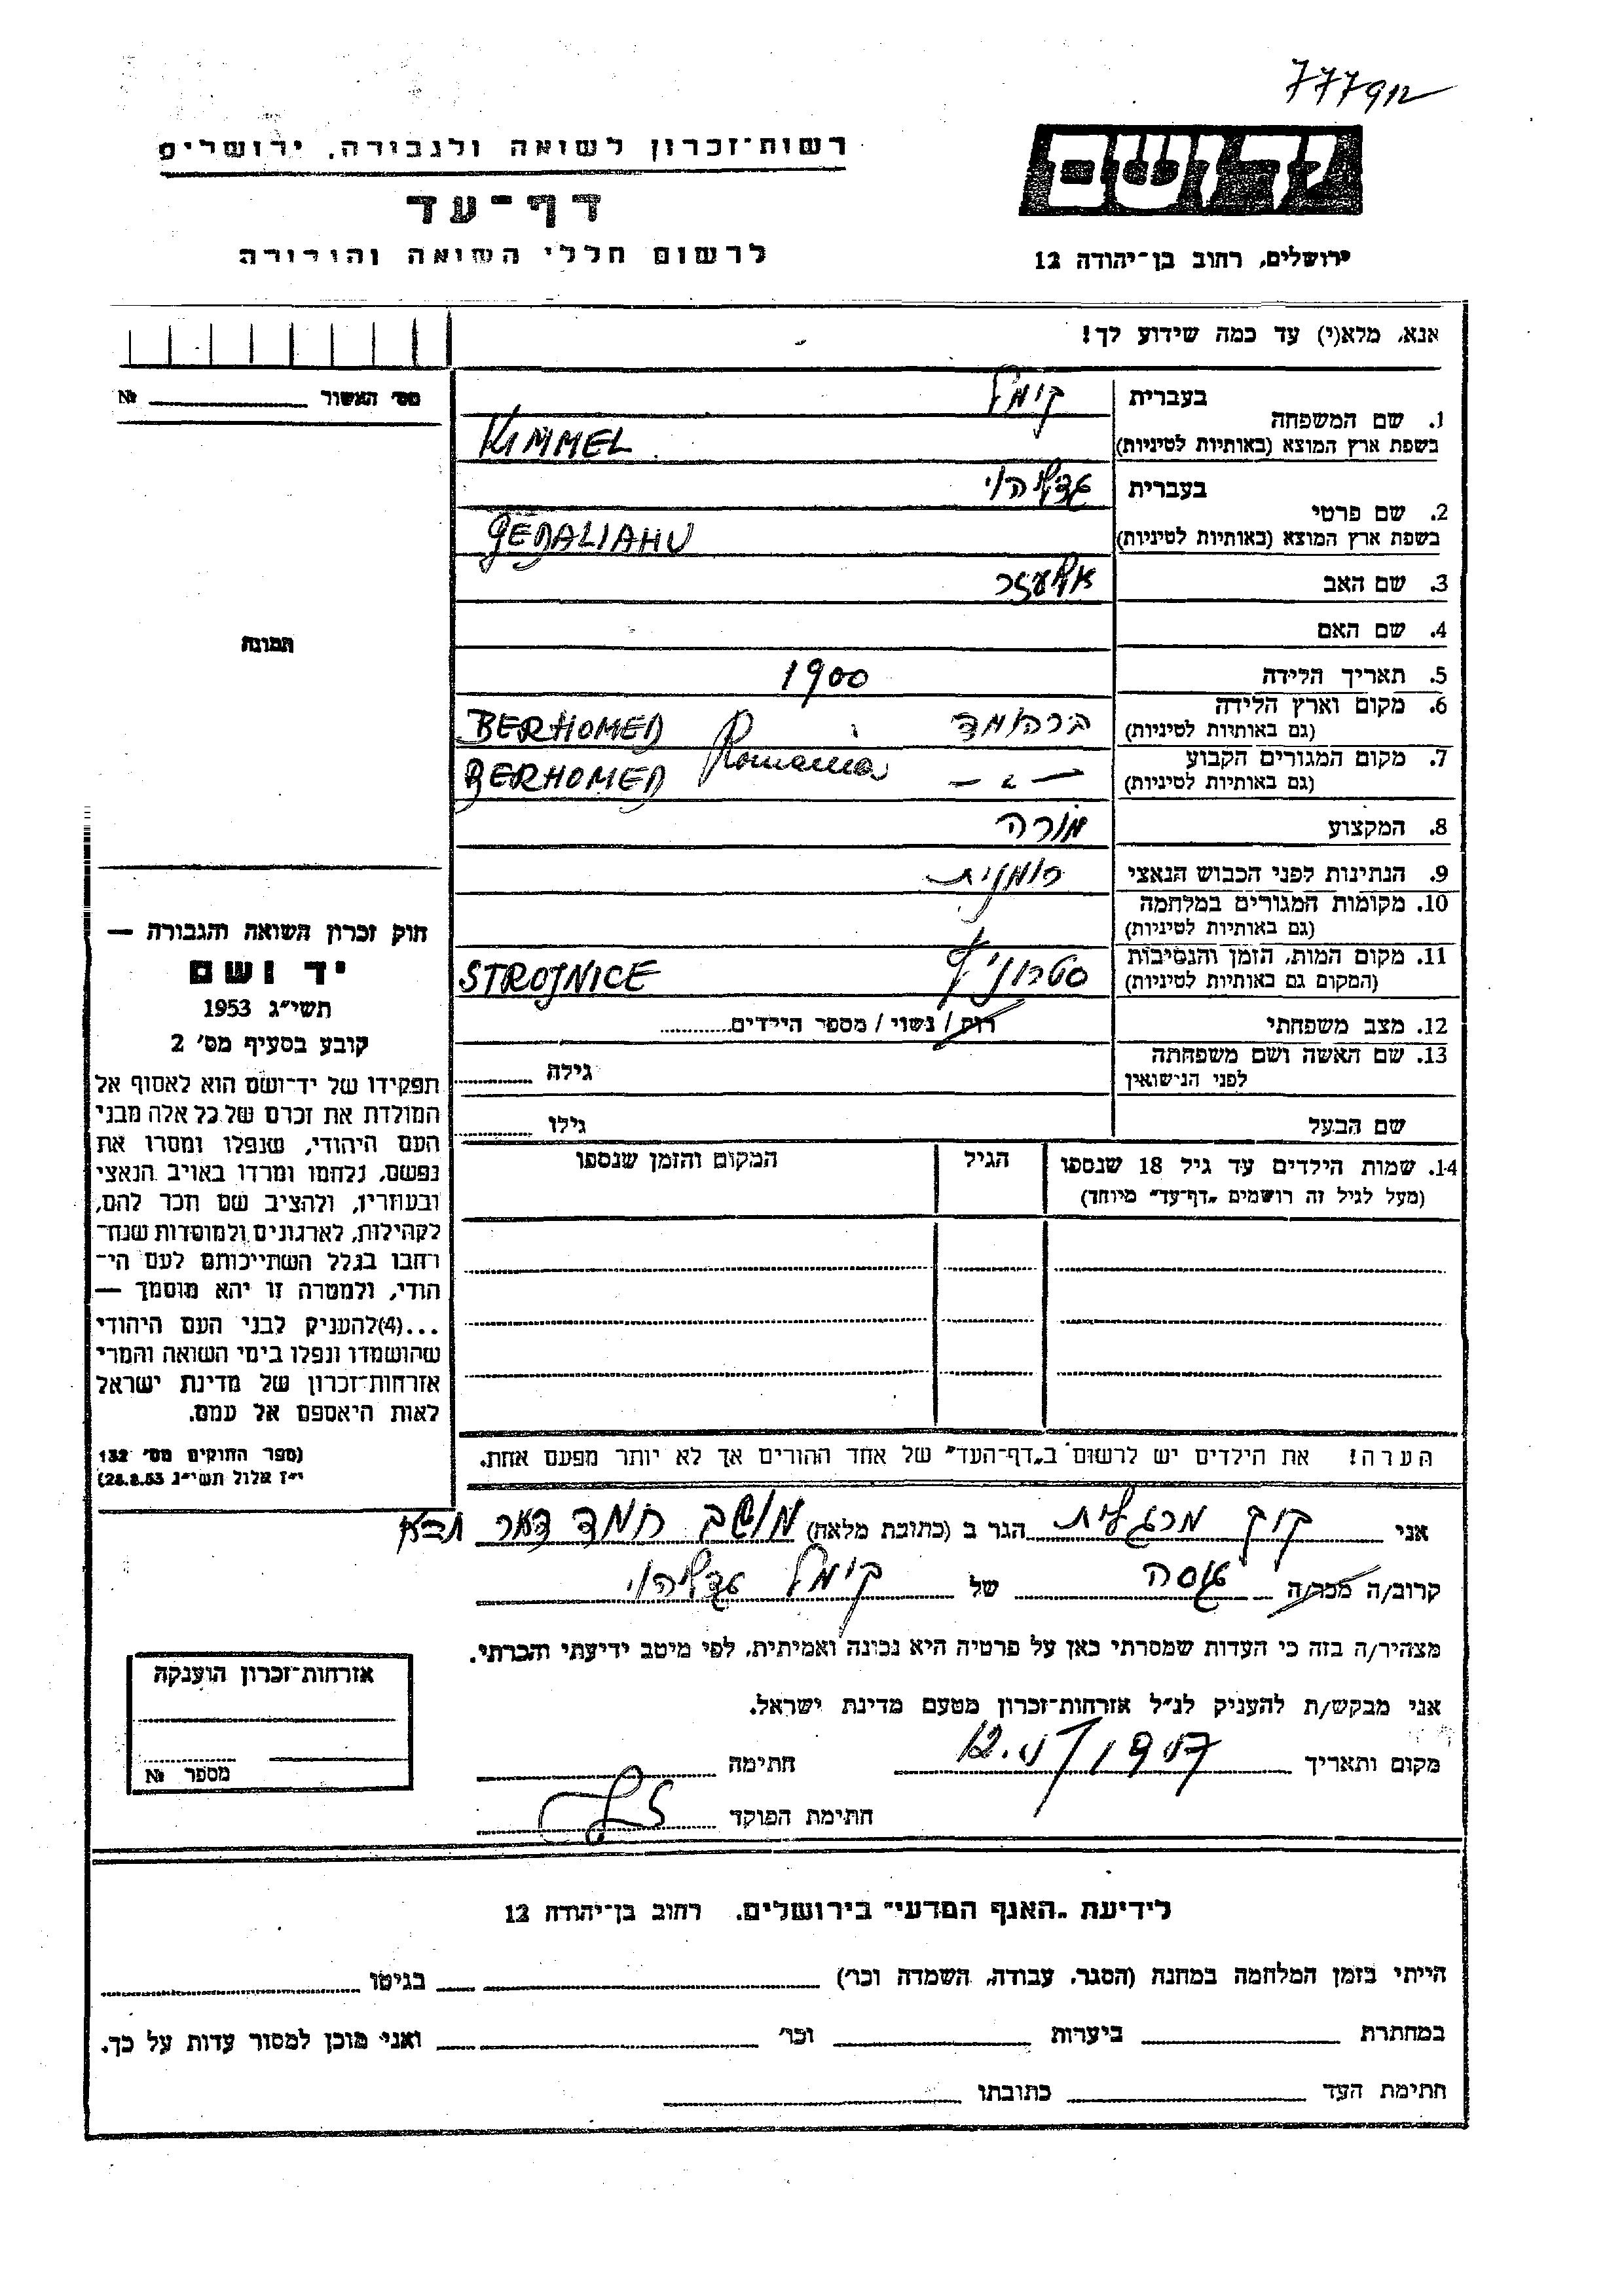 777912
רשות־זכרון לשואה ולגבורה, ירושלים
דף־עד
לרשום חללי השואה והגבורה
יד ושם
ירושלים, רחוב בן־יהודה 12
אנא, מלא(י) עד כמה שידוע לך!
מס' האשור № ____
תמונה
1. שם המשפחה בעברית קימל
בשפת ארץ המוצא (באותיות לטיניות) KIMMEL
2. שם פרטי בעברית גדליהו
בשפת ארץ המוצא (באותיות לטיניות) GEDALIAHU
3. שם האב אליעזר
4. שם האם
5. תאריך הלידה 1900
6. מקום וארץ הלידה (גם באותיות לטיניות) ברהומד BERHOMED Romania
7. מקום המגורים הקבוע (גם באותיות לטיניות) — " — BERHOMED
8. המקצוע מורה
9. הנתינות לפני הכבוש הנאצי רומנית
10. מקומות המגורים במלחמה (גם באותיות לטיניות)
11. מקום המות, הזמן והנסיבות (המקום גם באותיות לטיניות) STROJNICE
12. מצב משפחתי רוק / נשוי / מספר הילדים
13. שם האשה ושם משפחתה לפני הנישואין גילה
שם הבעל גילו
14. שמות הילדים עד גיל 18 שנספו (מעל לגיל זה רושמים "דף־עד" מיוחד) הגיל המקום והזמן שנספו
חוק זכרון השואה והגבורה —
יד ושם
תשי"ג 1953
קובע בסעיף מס' 2
תפקידו של יד־ושם הוא לאסוף אל
המולדת את זכרם של כל אלה מבני
העם היהודי, שנפלו ומסרו את
נפשם, נלחמו ומרדו באויב הנאצי
ובעוזריו, ולהציב שם וזכר להם,
לקהילות, לארגונים ולמוסדות שנח־
רבו בגלל השתייכותם לעם הי־
הודי, ולמטרה זו יהא מוסמך —
...(4)להעניק לבני העם היהודי
שהושמדו ונפלו בימי השואה והמרי
אזרחות־זכרון של מדינת ישראל
לאות היאספם אל עמם.
(ספר החוקים מס' 132
י"ז אלול תשי"ג 28.8.53)
הערה! את הילדים יש לרשום ב"דף־העד" של אחד ההורים אך לא יותר מפעם אחת.
אני קוק מרגלית הגר ב (כתובת מלאה) מושב חמד דאר
קרוב/ה מכר/ה גיסה של קימל גדליהו
מצהיר/ה בזה כי העדות שמסרתי כאן על פרטיה היא נכונה ואמיתית, לפי מיטב ידיעתי והכרתי.
אני מבקש/ת להעניק לנ"ל אזרחות־זכרון מטעם מדינת ישראל.
מקום ותאריך חתימה
חתימת הפוקד
אזרחות־זכרון הוענקה
מספר №
לידיעת "האגף המדעי" בירושלים, רחוב בן־יהודה 12
הייתי בזמן המלחמה במחנה (הסגר, עבודה, השמדה וכו') בגיטו
במחתרת ביערות וכו' ואני מוכן למסור עדות על כך.
חתימת העד כתובתו